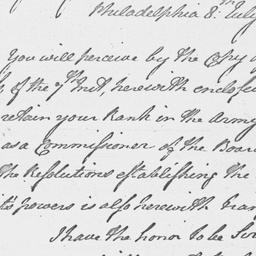 Philadelphia 8th July
You will perceive by the Copy
of the 7th Inst, herewith enclosed
retain your Rank in the Army
as a Commissioner of the Board
The Resolutions establishing the
its powers is also herewith tran
I have the honor to be Sir